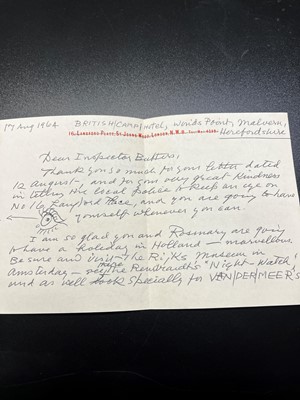 Aug 1964 BRITISH/CAMP/HOTEL, Wynds Point, Malvern,
Herefordshire
16, LANGFORD PLACE, ST. JOHNS WOOD, LONDON, N.W.8.
Dear Inspector Butters,
Thank you so much for your letter dated
12 August — and for your very great kindness
in telling the local police to keep an eye on
No 16, Langford Place, and you are going to have
yourself whenever you can.
I am so glad you and Rosemary are going
to have a holiday in Holland — marvellous.
Be sure and visit The Rijks Museum in
Amsterdam — see there Rembrandt's "Night-Watch",
and as well look specially for VAN/DER/MEER'S